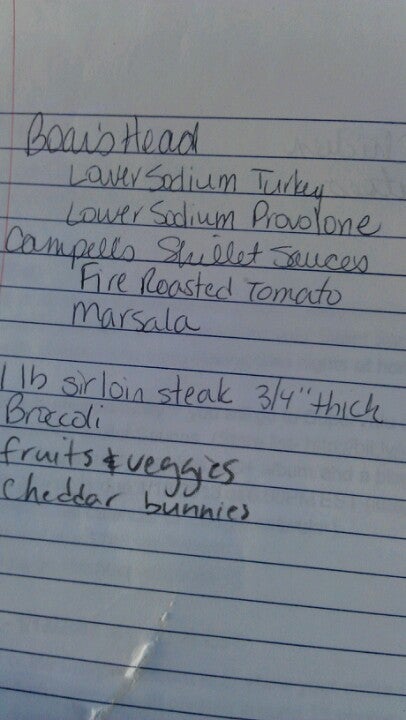 Boar's Head
Lower Sodium Turkey
Lower Sodium Provolone
Campells Skillet Sauces
Fire Roasted Tomato
Marsala
1 lb sirloin steak 3/4" thick
Broccoli
fruits & veggies
Cheddar bunnies